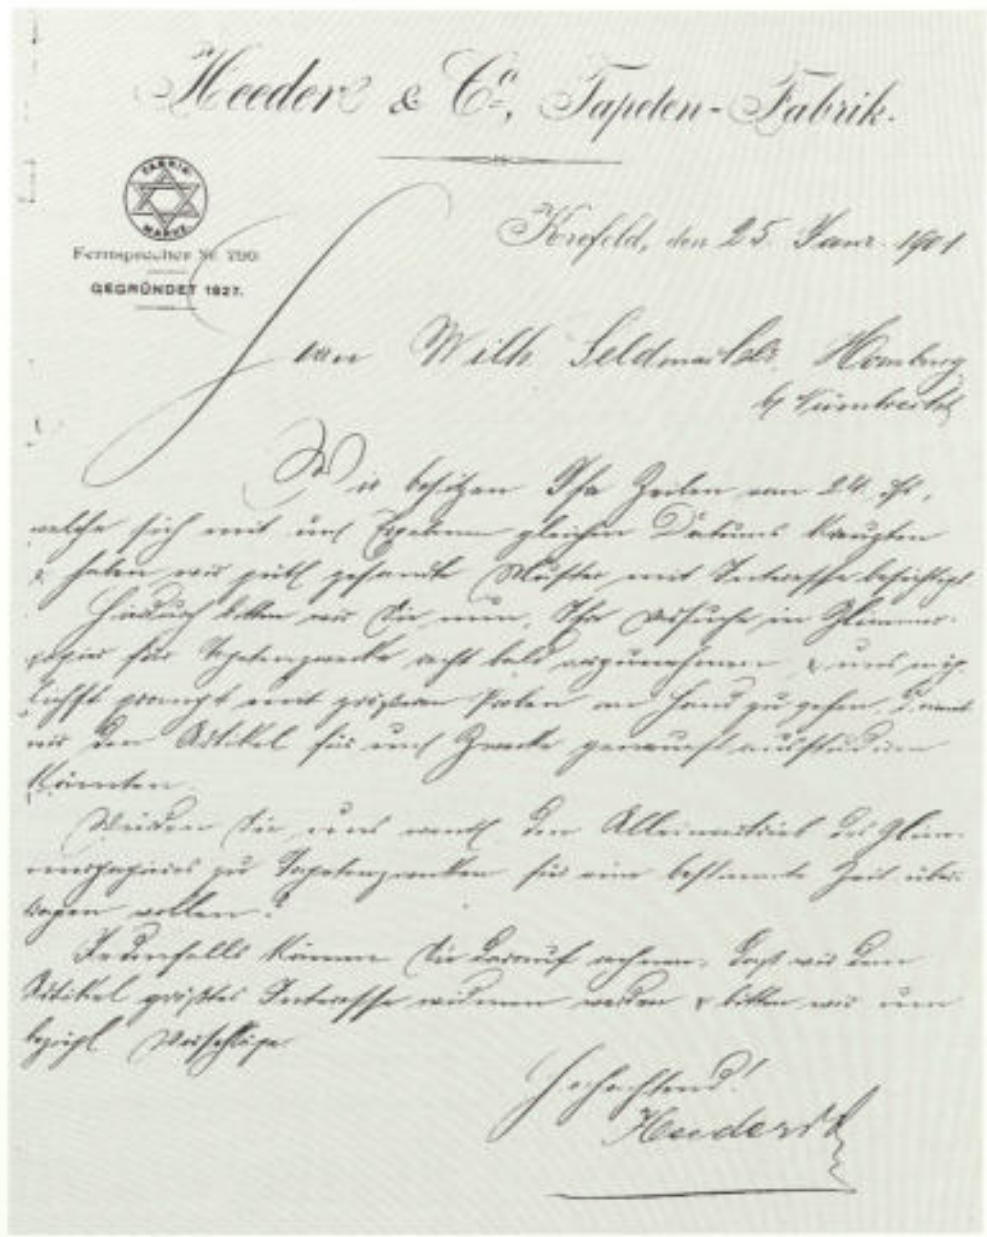 Heeder & Co, Tapeten-Fabrik.
FABRIK
MARKE
Fernsprecher Nr. 290
GEGRÜNDET 1827.
Krefeld, den 25. Janr. 1901
Wilh. Homberg
Wir besitzen Ihre Zeilen vom 24. ds.,
welche sich mit uns. Ergebenen gleichen Datums kreuzten
& haben wir gütl. gesandte Muster mit Interesse besichtigt
Hierdurch bitten wir Sie nun, Ihre Versuche in Glimmer-
papier für Tapetenzwecke recht bald vorzunehmen & uns mög-
lichst prompt mit größeren Proben an Hand zu gehen, damit
wir den Artikel für uns. Zwecke genauest ausstudieren
könnten.
Würden Sie uns den Alleinvertrieb des Glim-
merpapieres zu Tapetenzwecken für eine bestimmte Zeit über-
tragen wollen?
Jedenfalls können Sie darauf rechnen, daß wir dem
Artikel größtes Interesse widmen werden & bitten wir um
bezügl. Vorschläge.
Hochachtend!
Heeder & Co